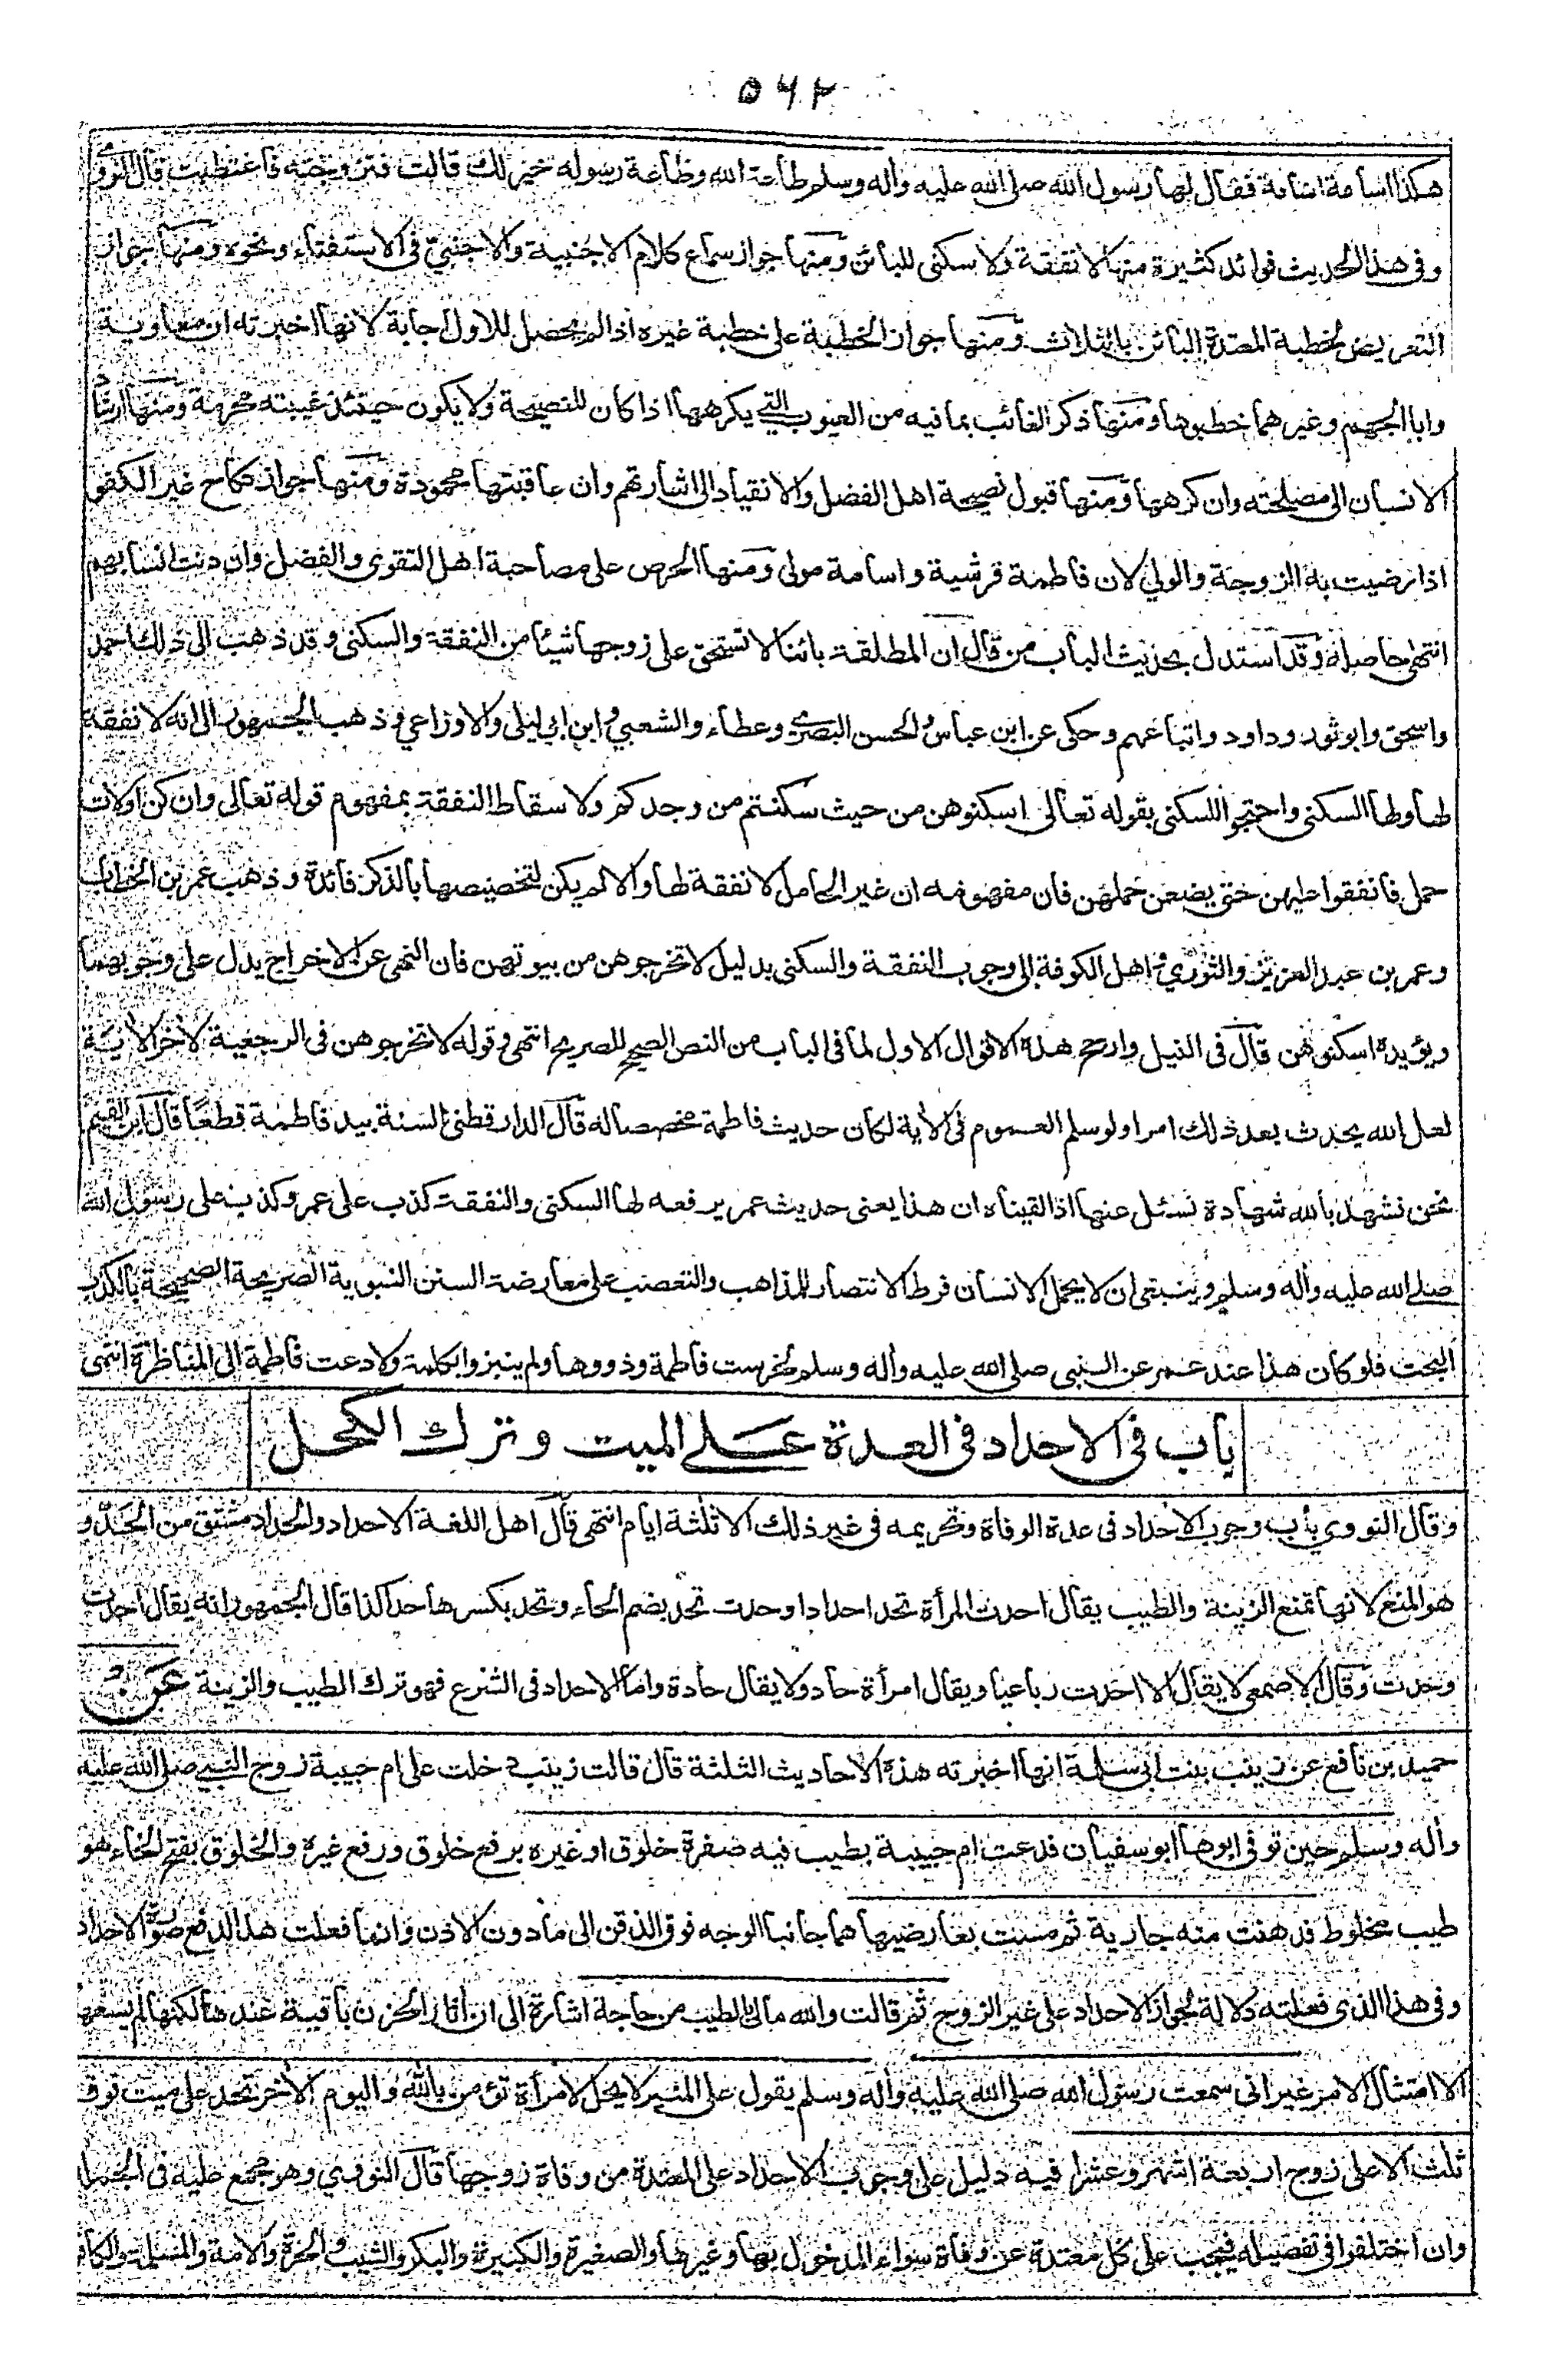 ٥٦٢
هكذا اسامة اسامة فقال لها رسول الله صلى الله عليه وأله وسلم طاعة الله وطاعة رسوله خير لك قالت فتزوجته فاغتبطت قال النووي
وفى هذا الحديث فوائد كثيرة منها لا نفقة ولا سكنى للبائن ومنها جواز سماع كلام الاجنبية والاجنبي فى الاستفتاء ونحوه ومنها جواز
التعريض لخطبة المعتدة البائن بالثلاث ومنها جواز الخطبة على خطبة غيره اذا لم يحصل للاول اجابة لانها اخبرته ان معاوية
وابا الجهم وغيرهما خطبوها ومنها ذكر الغائب بما فيه من العيوب التي يكرهها اذا كان للنصيحة ولا يكون حينئذ غيبته محرمة ومنها ارشاد
الانسان الى مصلحته وان كرهها ومنها قبول نصيحة اهل الفضل والانقياد الى اشارتهم وان عاقبتها محمودة ومنها جواز نكاح غير الكفو
اذا رضيت به الزوجة والولي لان فاطمة قرشية واسامة مولى ومنها الحرص على مصاحبة اهل التقوى والفضل وان دنت انسابهم
انتهى حاصله وقد استدل بحديث الباب من قال ان المطلقة بائنا لا تستحق على زوجها شيئا من النفقة والسكنى وقد ذهب الى ذلك احمد
واسحق وابو ثور وداود واتباعهم وحكى عن ابن عباس والحسن البصري وعطاء والشعبي وابن ابي ليلى والاوزاعي وذهب الجمهور الى انه لا نفقة
لها ولها السكنى واحتجوا للسكنى بقوله تعالى اسكنوهن من حيث سكنتم من وجدكم ولاسقاط النفقة بمفهوم قوله تعالى وان كن اولات
حمل فانفقوا عليهن حتى يضعن حملهن فان مفهومه ان غير الحامل لا نفقة لها والا لم يكن لتخصيصها بالذكر فائدة وذهب عمر بن الخطاب
وعمر بن عبد العزيز والثوري واهل الكوفة الى وجوب النفقة والسكنى بدليل لا تخرجوهن من بيوتهن فان النهى عن الاخراج يدل على وجوبهما
ويؤيده اسكنوهن قال فى النيل وارجح هذه الاقوال الاول لما فى الباب من النص الصحيح الصريح انتهى وقوله لا تخرجوهن فى الرجعية لأخر الأية
لعل الله يحدث بعد ذلك امرا ولو سلم العموم فى الأية لكان حديث فاطمة مخصصا له قال الدارقطنى السنة بيد فاطمة قطعًا قال ابن القيم
نحن نشهد بالله شهادة نسئل عنها اذا لقيناه ان هذا يعنى حديث عمر يرفعه لها السكنى والنفقة كذب على عمر وكذب على رسول الله
صلى الله عليه وأله وسلم وينبغى ان لا يحمل الانسان فرط الانتصار للمذاهب والتعصب على معارضة السنن النبوية الصريحة الصحيحة بالكذب
البحت فلو كان هذا عند عمر عن النبى صلى الله عليه وأله وسلم لخرست فاطمة وذووها ولم ينبزوا بكلمة ولا دعت فاطمة الى المناظرة انتهى
باب فى الاحداد فى العدة على الميت وترك الكحل
وقال النووي باب وجوب الاحداد فى عدة الوفاة وتحريمه فى غير ذلك الا ثلثة ايام انتهى قال اهل اللغة الاحداد والحداد مشتق من الحدّ و
هو المنع لانها تمنع الزينة والطيب يقال احدت المرأة تحد احدادا وحدت تحد بضم الحاء وتحد بكسرها حدا كذا قال الجمهور انه يقال احدت
وحدت وقال الاصمعى لا يقال الا احدت رباعيا ويقال امرأة حاد ولا يقال حادة واما الاحداد فى الشرع فهو ترك الطيب والزينة عن
حميد بن نافع عن زينب بنت ابى سلمة انها اخبرته هذه الاحاديث الثلثة قال قالت زينب دخلت على ام حبيبة زوج النبي صلى الله عليه
وأله وسلم حين توفى ابوها ابو سفيان فدعت ام حبيبة بطيب فيه صفرة خلوق او غيره برفع خلوق ورفع غيره والخلوق بفتح الخاء هو
طيب مخلوط فدهنت منه جارية ثم مست بعارضيها هما جانبا الوجه فوق الذقن الى ما دون الاذن وانما فعلت هذا لدفع صورة الاحداد
وفى هذا الذى فعلته دلالة لجواز الاحداد على غير الزوج ثم قالت والله مالى بالطيب من حاجة اشارة الى ان أثار الحزن باقية عندها لكنها لم يسعها
الا امتثال الامر غير انى سمعت رسول الله صلى الله عليه وأله وسلم يقول على المنبر لا يحل لامرأة تؤمن بالله واليوم الأخر تحد على ميت فوق
ثلث الا على زوج اربعة اشهر وعشرا فيه دليل على وجوب الاحداد على المعتدة من وفاة زوجها قال النووي وهو مجمع عليه فى الجملة
وان اختلفوا فى تفصيله فيجب على كل معتدة عن وفاة سواء المدخول بها وغيرها والصغيرة والكبيرة والبكر والثيب والحرة والامة والمسلمة والكافرة